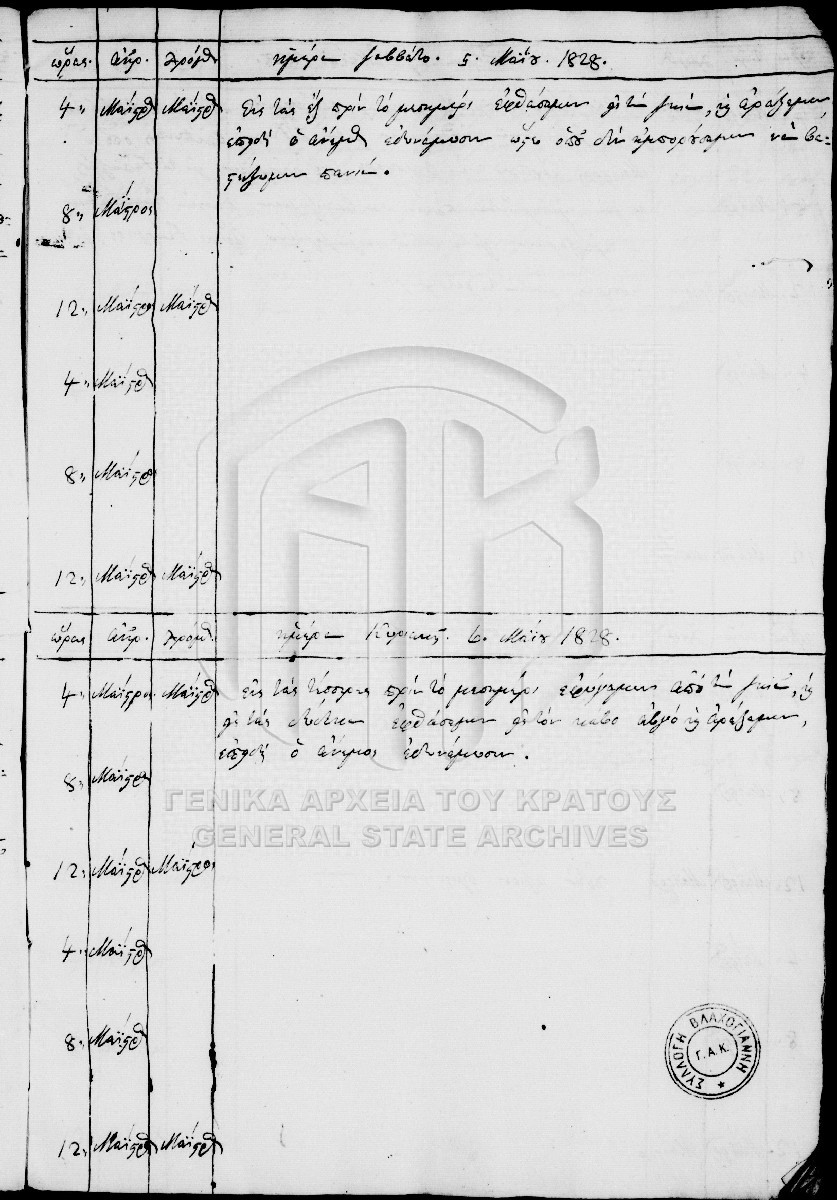 ὥρας. ἄνεμ. δρόμος ἡμέρα σαββάτο. 5. Μαΐου 1828.
4" Μαΐστρος Μαΐστρος Εἰς τὰς ἓξ πρὶν τὸ μεσημέρι ἐφθάσαμεν εἰς τὴν, καὶ ἀράξαμεν,
ἐπειδὴ ὁ ἄνεμος ἐδυνάμωσεν ὥστε ὁποῦ δὲν ἠμπορέσαμεν νὰ βα-
στάξωμεν πανιά.
8" Μαΐστρος
12" Μαΐστρος Μαΐστρος
4" Μαΐστρος
8" Μαΐστρος
12" Μαΐστρος Μαΐστρος
ὥρας ἄνεμ. δρόμ. ἡμέρα Κυριακή. 6. Μαΐου 1828.
4" Μαΐστρος Μαΐστρος Εἰς τὰς τέσσερας πρὶν τὸ μεσημέρι ἐφύγαμεν ἀπὸ τὴν, καὶ
εἰς τὰς ἐφθάσαμεν εἰς τὸν κάβο καὶ ἀράξαμεν,
ἐπειδὴ ὁ ἄνεμος ἐδυνάμωσεν.
8" Μαΐστρος
12" Μαΐστρος Μαΐστρος
4" Μαΐστρος
8" Μαΐστρος
12" Μαΐστρος Μαΐστρος
ΓΕΝΙΚΑ ΑΡΧΕΙΑ ΤΟΥ ΚΡΑΤΟΥΣ
GENERAL STATE ARCHIVES
ΣΥΛΛΟΓΗ ΒΛΑΧΟΓΙΑΝΝΗ
Γ.Α.Κ.